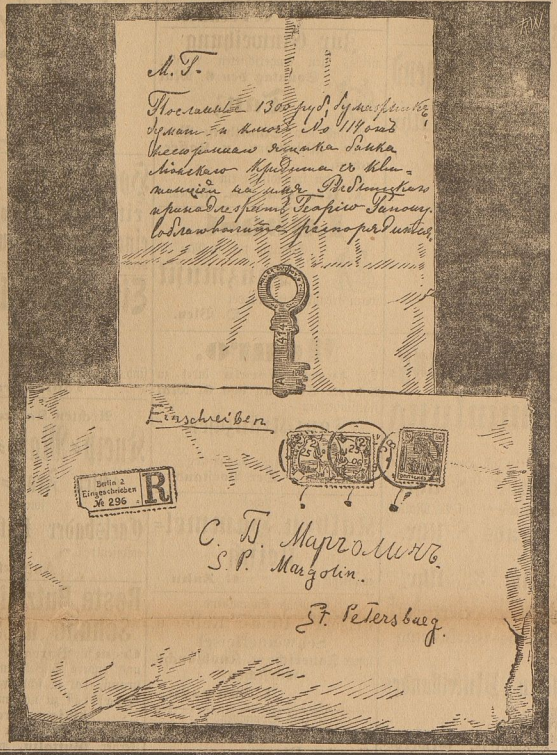 М. Г.
Посланные 1300 руб, бумажникъ,
бумаги и ключъ № 114 отъ
несгораемаго ящика банка
Ліонскаго Кредита съ кви-
танціей на имя Рыбницкаго
принадлежатъ Георгію Гапону.
соблаговолите распорядиться.
414
Einschreiben
Berlin 2
Eingeschrieben
№ 296
R
С. П. Марголинъ.
S. P. Margolin.
St. Petersburg.